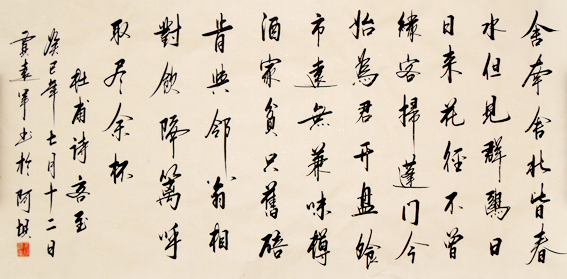 舍南舍北皆春
水但見群鷗日
日来花径不曾
缘客掃蓬門今
始為君开盘飧
市遠無兼味樽
酒家貧只舊醅
肯與邻翁相
對飲隔篱呼
取尽余杯
杜甫诗客至
癸巳年七月十二日
遠军书於阿坝